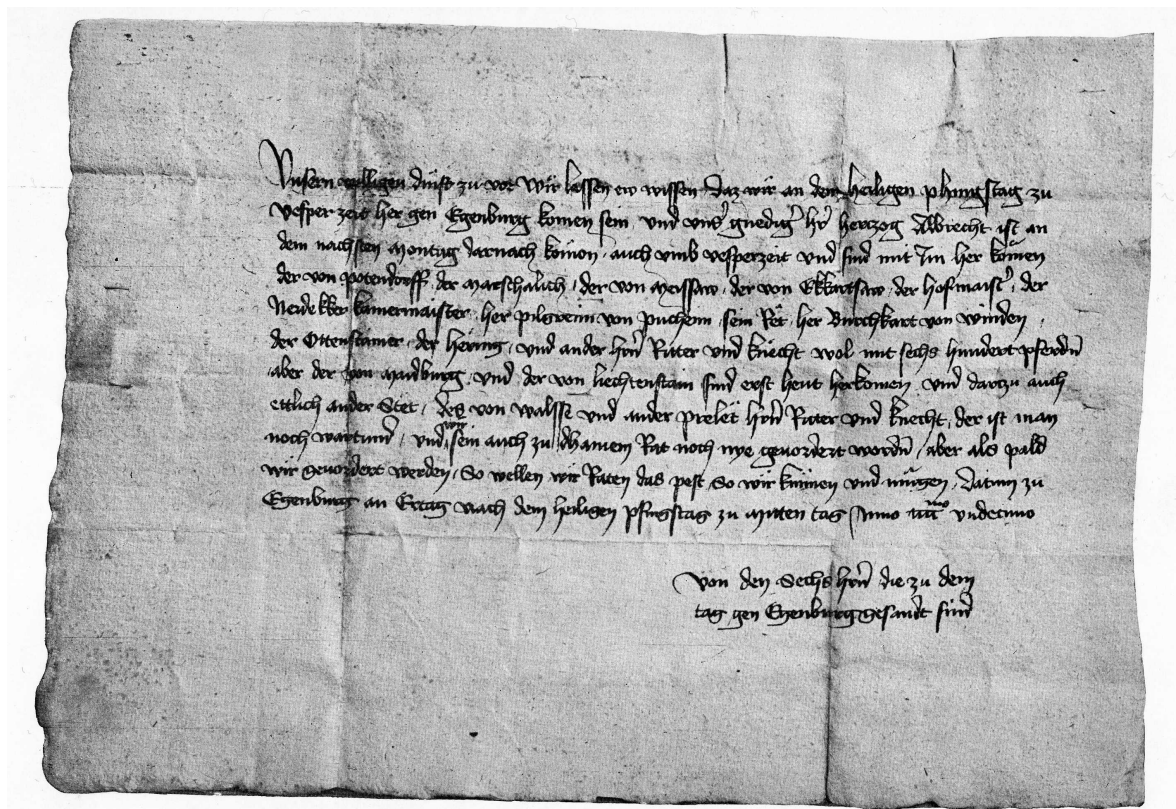 Unsern willigen dinst zu vor Wir lassen ew wissen Daz wir an dem heiligen phingstag zu
vesper zeit her gen Egenburg komen sein und unser gnediger her herczog Albrecht ist an
dem nachsten Montag darnach komen auch umb vesperzeit und sind mit Im her komen
der von potendorff der Marschalich der von Meissaw der von Ekkartsaw der hofmaister der
Neidekker kamermaister her pilgreim von puchem sein Ret her Burchkart von winden
der Ottenstainer der hering und ander hern Ritter und knecht wol mit sechs hundert pferden
aber der von Maidburg und der von liechtenstain sind erst heut herkomen und darczu auch
ettlich ander Stet des von walsse und ander prelet hern Ritter und knecht der ist man
noch wartund und wir sein auch zu dhainem Rat noch nye gevordert worden aber als pald
wir gevordert werden So wellen wir Raten das pest So wir kunnen und mugen Datum zu
Egenburg an Ertag nach dem heiligen pfingstag zu mitten tag Anno undecimo
von den Sechs hern die zu dem
tag gen Egenburg gesandt sind